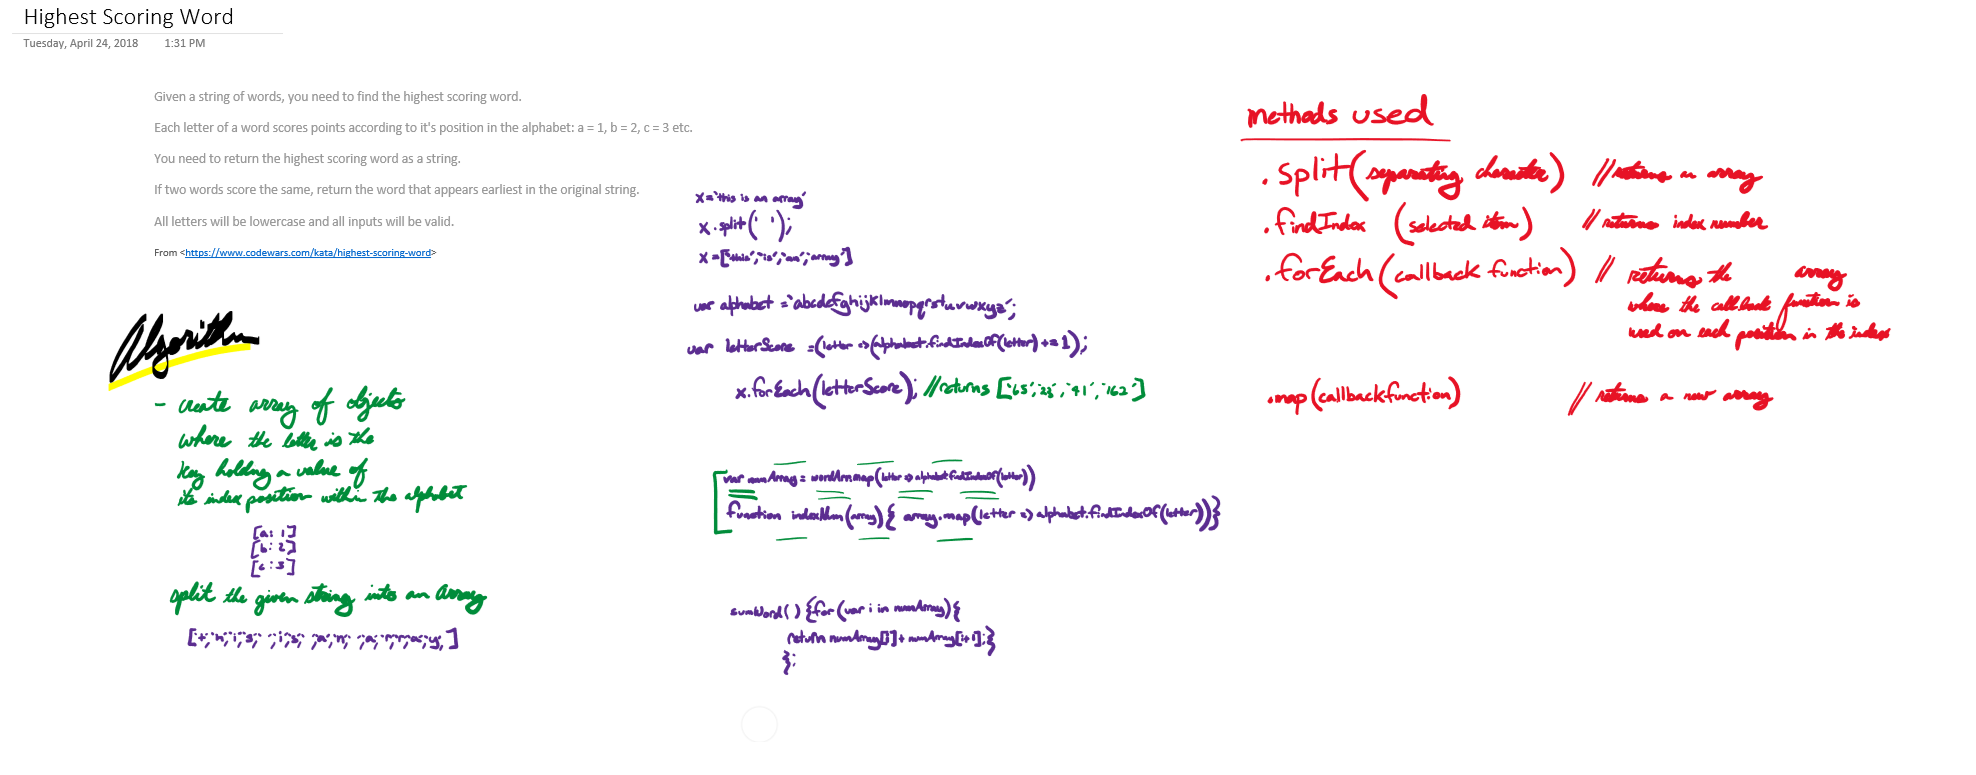 Highest Scoring Word
Tuesday, April 24, 2018 1:31 PM
Given a string of words, you need to find the highest scoring word.
Each letter of a word scores points according to it's position in the alphabet: a = 1, b = 2, c = 3 etc.
You need to return the highest scoring word as a string.
If two words score the same, return the word that appears earliest in the original string.
All letters will be lowercase and all inputs will be valid.
From <https://www.codewars.com/kata/highest-scoring-word>
Algorithm
- create array of objects
where the letter is the
key holding a value of
its index position within the alphabet
[a: 1]
[b: 2]
[c: 3]
split the given string into an array
['t','h','i','s',' ','i','s',' ','a','n',' ','a','r','r','a','y',]
x = 'this is an array'
x.split(' ');
x = ['this','is','an','array']
var alphabet = 'abcdefghijklmnopqrstuvwxyz';
var letterScore = (letter => (alphabet.findIndexOf(letter) += 1);
x.forEach(letterScore); //returns ['65','23','41','162']
var numArray = wordArr.map(letter => alphabet.findIndexOf(letter))
function indexNum(array){ array.map(letter => alphabet.findIndexOf(letter))}
sumWord() {for(var i in numArray){
return numArray[i] + numArray[i+1];}
};
methods used
.split(separating character) //returns an array
.findIndex (selected item) //returns index number
.forEach(callback function) // returns the array
where the callback function is
used on each position in the index
.map(callbackfunction) // returns a new array